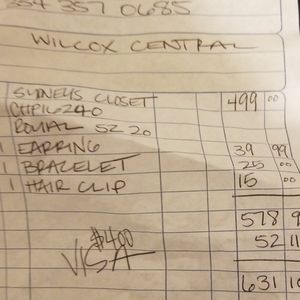 354 357 0685
WILCOX CENTRAL
SYDNEYS CLOSET 499 00
ROYAL SZ 20
1 EARRING 39 99
1 BRACELET 25 00
1 HAIR CLIP 15 00
578 9
$400 52 11
VISA
631 10